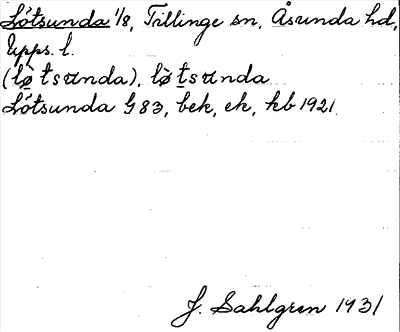 Lötsunda 1/8, Tillinge sn, Åsunda hd,
Upps. l.
(lø̀tsunda), lø̀tsunda
Lötsunda G 83, bek, ek, kb 1921.
J. Sahlgren 1931